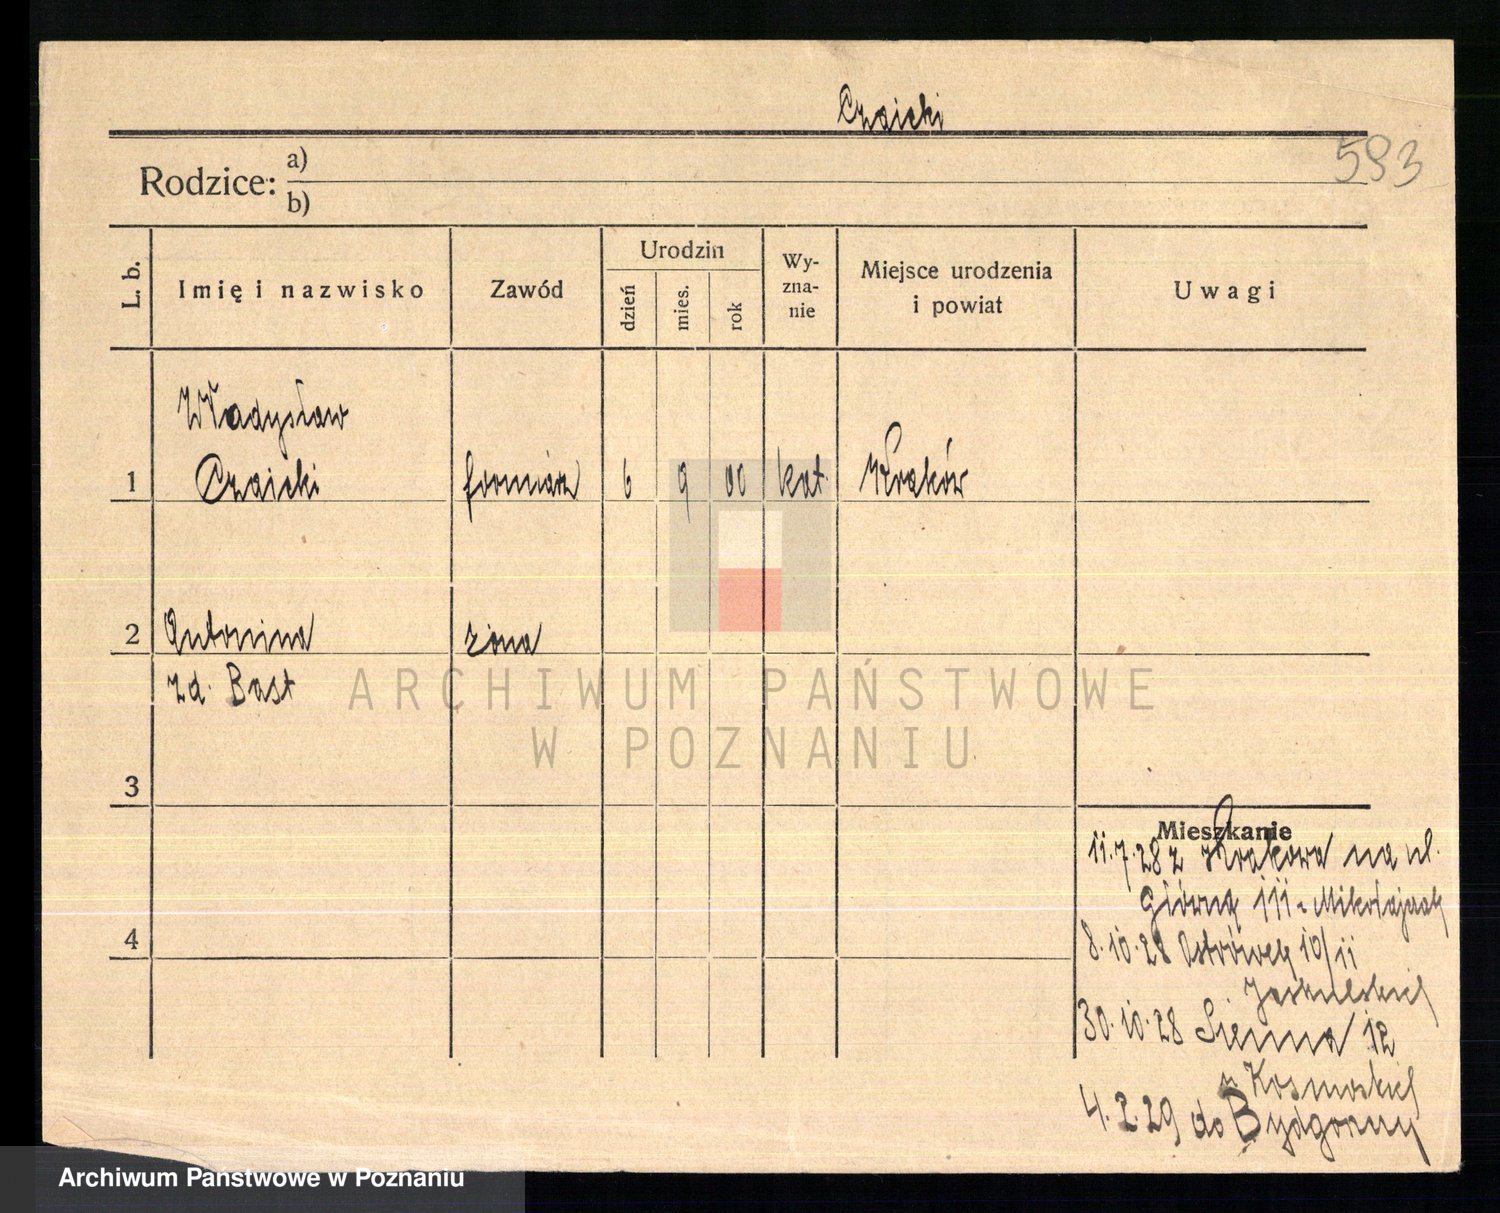 Czaicki
593
Rodzice: a)
b)
L. b.
Imię i nazwisko
Zawód
Urodzin
dzień
mies.
rok
Wy-
zna-
nie
Miejsce urodzenia
i powiat
Uwagi
Władysław
1 Czaicki formiarz 6 9 00 kat. Kraków
2 Antonina żona
zd. Bast
ARCHIWUM PAŃSTWOWE
W POZNANIU
3
Mieszkanie
11.7.28 z Krakowa na ul.
Główną
8.10.28 Ostrówek 10/11
4
30.10.28 Sienna 12
4.2.29 do Bydgoszczy
Archiwum Państwowe w Poznaniu